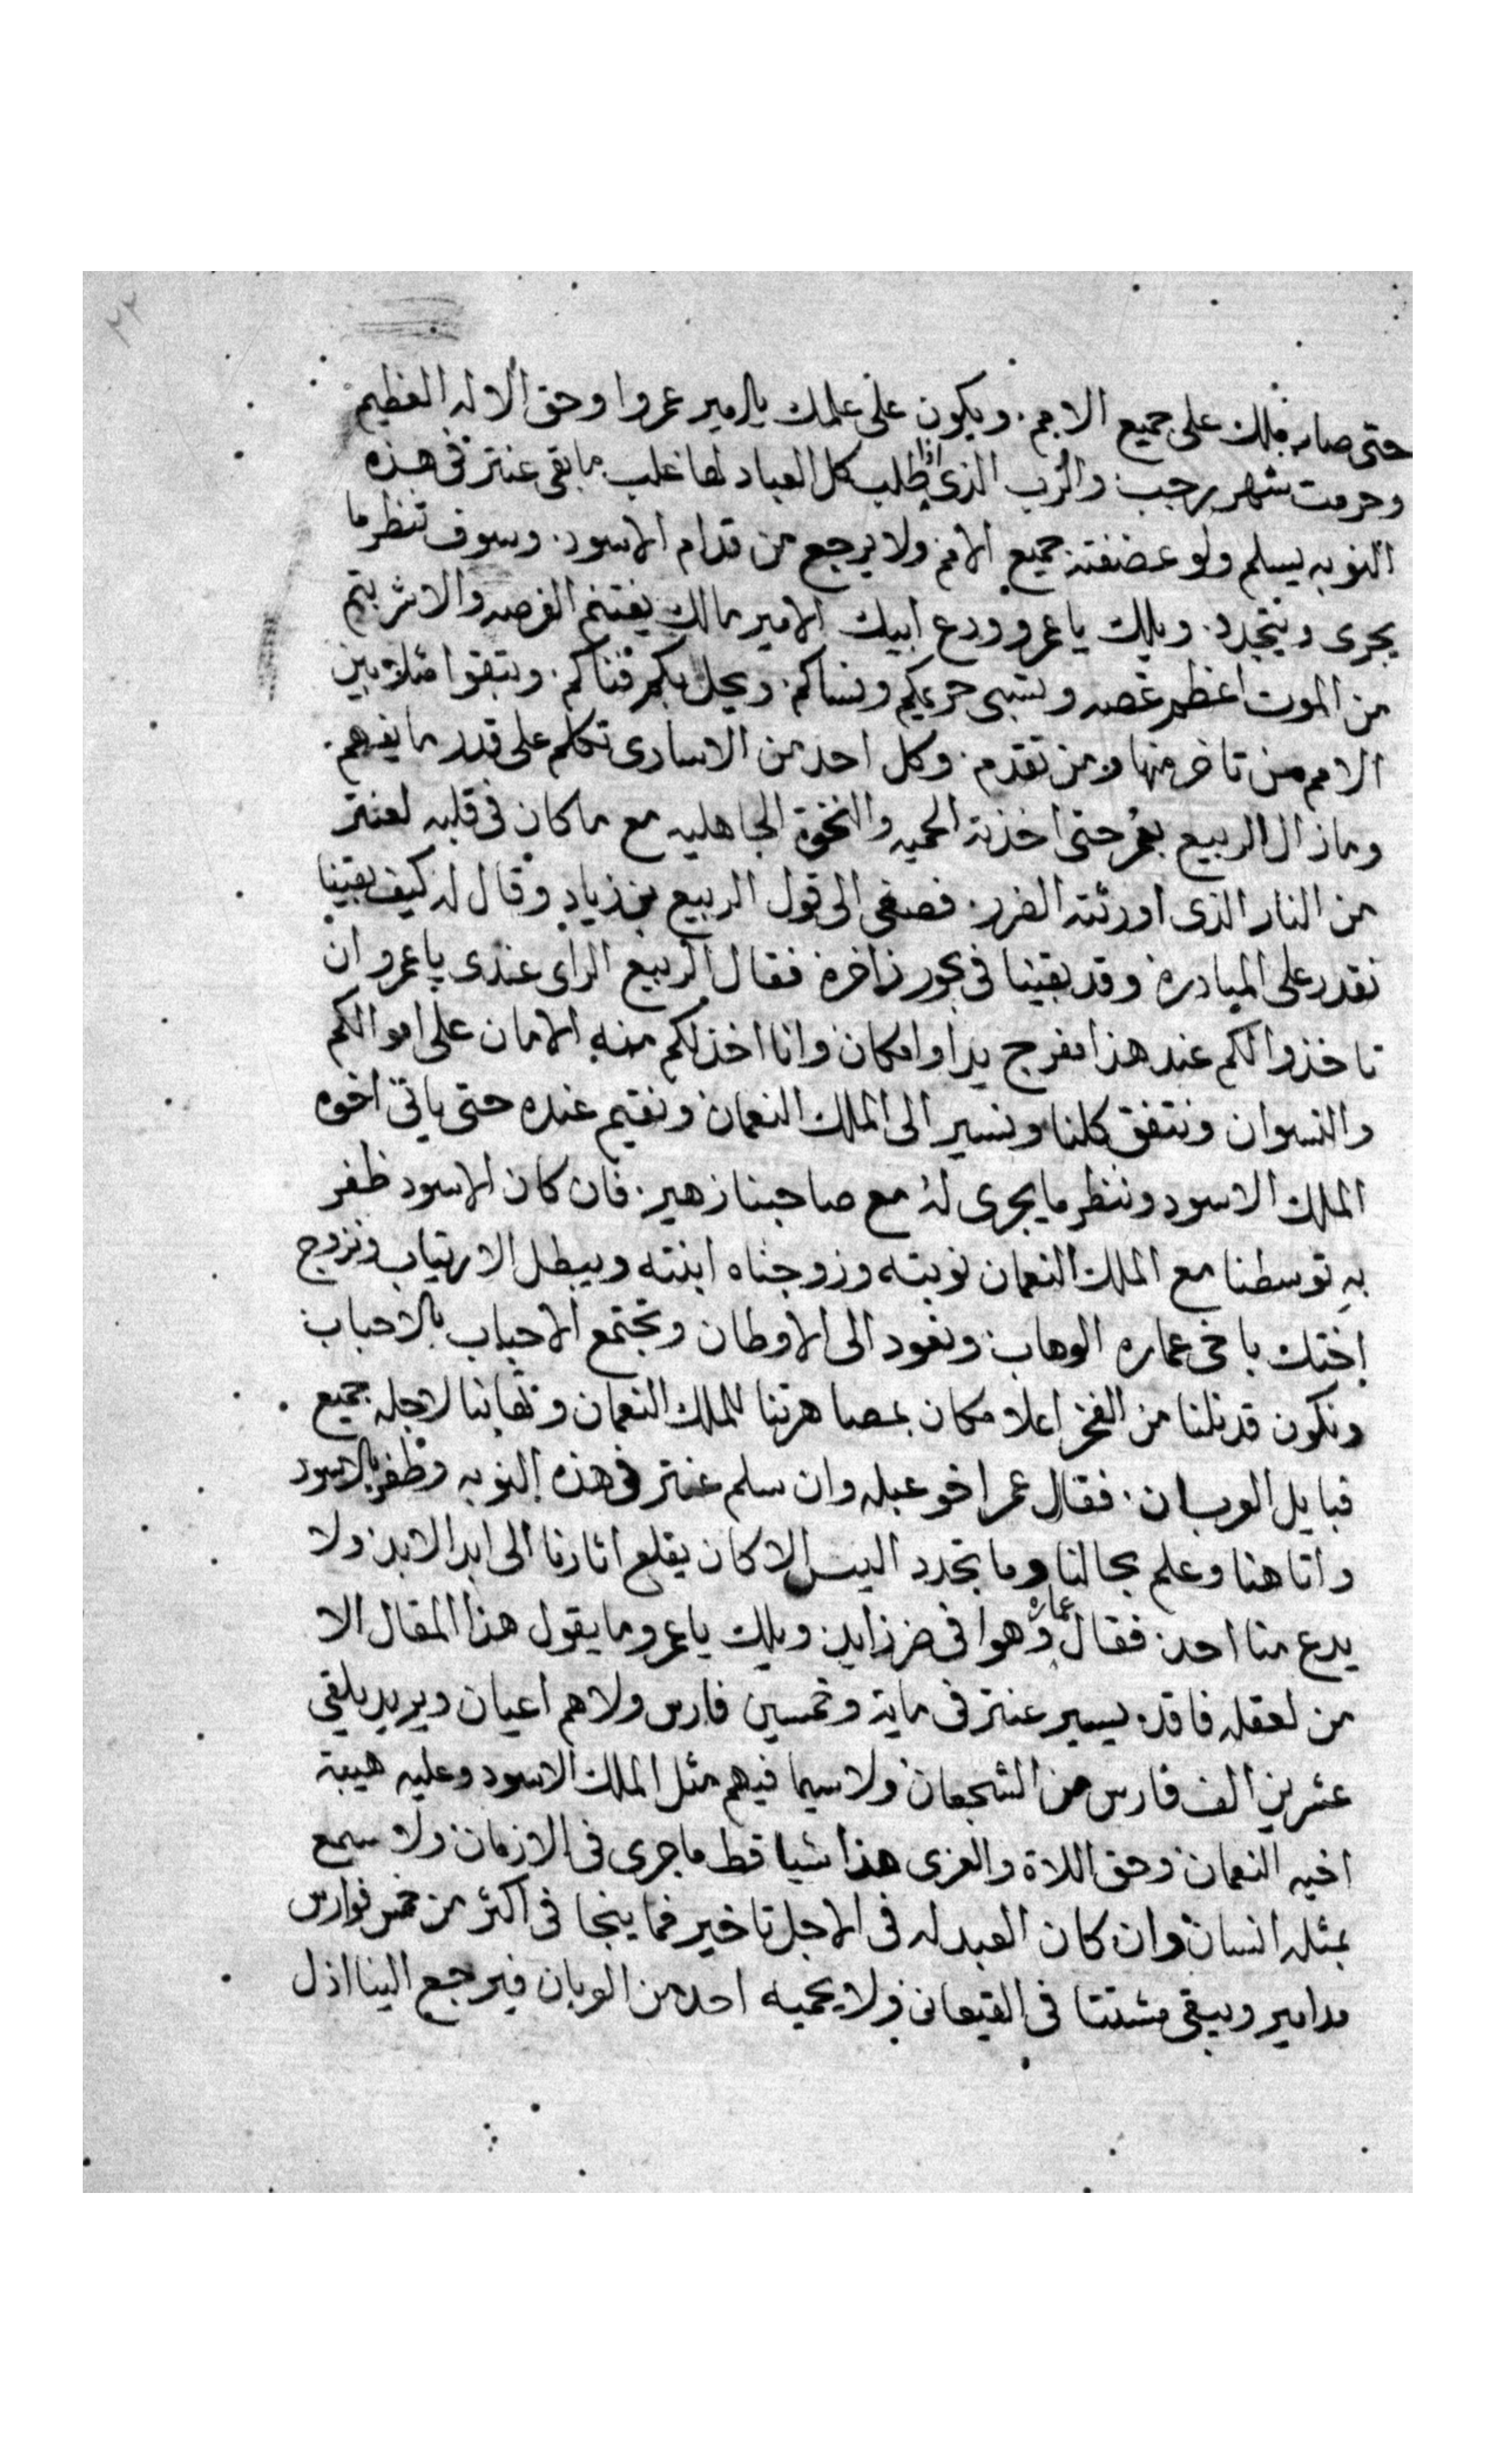 ٢٢
حتى صار يملك على جميع الامم. ويكون على علمك يالامير عمروا وحق الاله العظيم
وحرمت شهر رجب والرب الذى اذا طلب كل العباد لها غلب ما بقى عنتر فى هذه
النوبه يسلم ولو عضفته جميع الامم ولا يرجع من قدام الاسود. وسوف تنظر ما
يجرى ويتجدد. ويلك يا عمرو ودع ابيك الامير مالك يغتنم الفرصه والا شربتم
من الموت اعظم غصه وتسبى حريمكم ونساكم. ويحل بكم فناكم. وتبقوا مثلا بين
الامم من تاخر منها ومن تقدم. وكل احد من الاسارى تكلم على قدر ما يفهم.
وما زال الربيع بعمر حتى اخذته الحميه والنخوة الجاهليه مع ما كان فى قلبه لعنتر
من النار الذى اورثته الضرر. فصغى الى قول الربيع بن زياد وقال له كيف بقينا
نقدر على المبادره وقد بقينا فى بحور زاخرة فقال الربيع الراى عندى يا عمرو ان
تاخذوا لكم عند هذا مفرج يدا وامكان وانا اخذ لكم منه الامان على اموالكم
والنسوان ونتفق كلنا ونسير الى الملك النعمان ونقيم عنده حتى ياتى اخوه
الملك الاسود وننظر ما يجرى له مع صاحبنا زهير. فان كان الاسود ظفر
به توسطنا مع الملك النعمان نوبته وزوجناه ابنته ويبطل الارتياب ونزوج
اختك باخى عماره الوهاب ونعود الى الاوطان وتجتمع الاحباب بالاحباب
ونكون قد نلنا من الفخر اعلا مكان بمصاهرتنا للملك النعمان وتهابنا لاجله جميع
قبايل العربان. فقال عمر اخو عبله وان سلم عنتر فى هذه النوبه وظفر بالاسود
واتا هنا وعلم بحالنا وما تجدد اليس الا كان يقلع اثارنا الى ابد الابد ولا
يدع منا احد فقال عماره وهوا فى ضر زايد ويلك يا عمرو ما يقول هذا المقال الا
من لعقله فاقد يسير عنتر فى ماية وخمسين فارس ولاهم اعيان ويريد يلقى
عشرين الف فارس من الشجعان ولا سيما فيهم مثل الملك الاسود وعليه هيبة
اخيه النعمان وحق اللاة والعزى هذا شيا قط ما جرى فى الازمان ولا سمع
بمثله انسان وان كان العبد له فى الاجل تاخير فما ينجا فى اكثر من خمس فوارس
مدامير ويبقى مشتتا فى القيعان ولا يحميه احد من العربان فيرجع الينا اذل